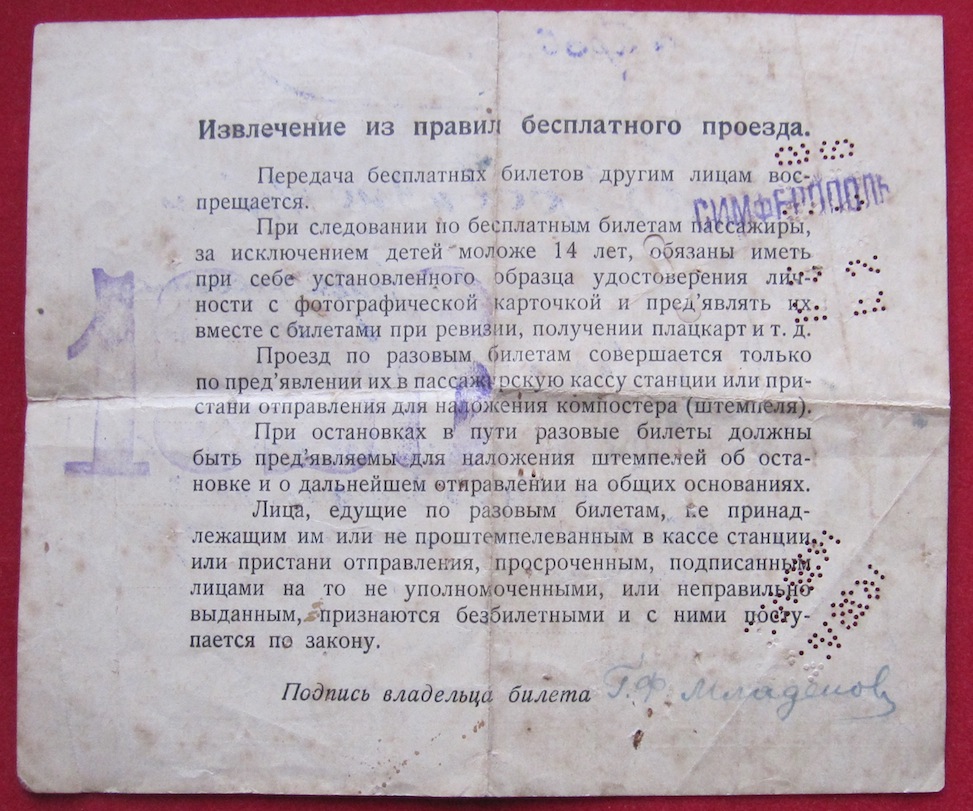 Извлечение из правил бесплатного проезда.
Передача бесплатных билетов другим лицам вос-
прещается.
СИМФЕРОПОЛЬ
При следовании по бесплатным билетам пассажиры,
за исключением детей моложе 14 лет, обязаны иметь
при себе установленного образца удостоверения лич-
ности с фотографической карточкой и пред'являть их
вместе с билетами при ревизии, получении плацкарт и т. д.
Проезд по разовым билетам совершается только
по пред'явлении их в пассажирскую кассу станции или при-
стани отправления для наложения компостера (штемпеля).
При остановках в пути разовые билеты должны
быть пред'являемы для наложения штемпелей об оста-
новке и о дальнейшем отправлении на общих основаниях.
Лица, едущие по разовым билетам, не принад-
лежащим им или не проштемпелеванным в кассе станции
или пристани отправления, просроченным, подписанным
лицами на то не уполномоченными, или неправильно
выданным, признаются безбилетными и с ними посту-
пается по закону.
Подпись владельца билета Г.Ф Младенов